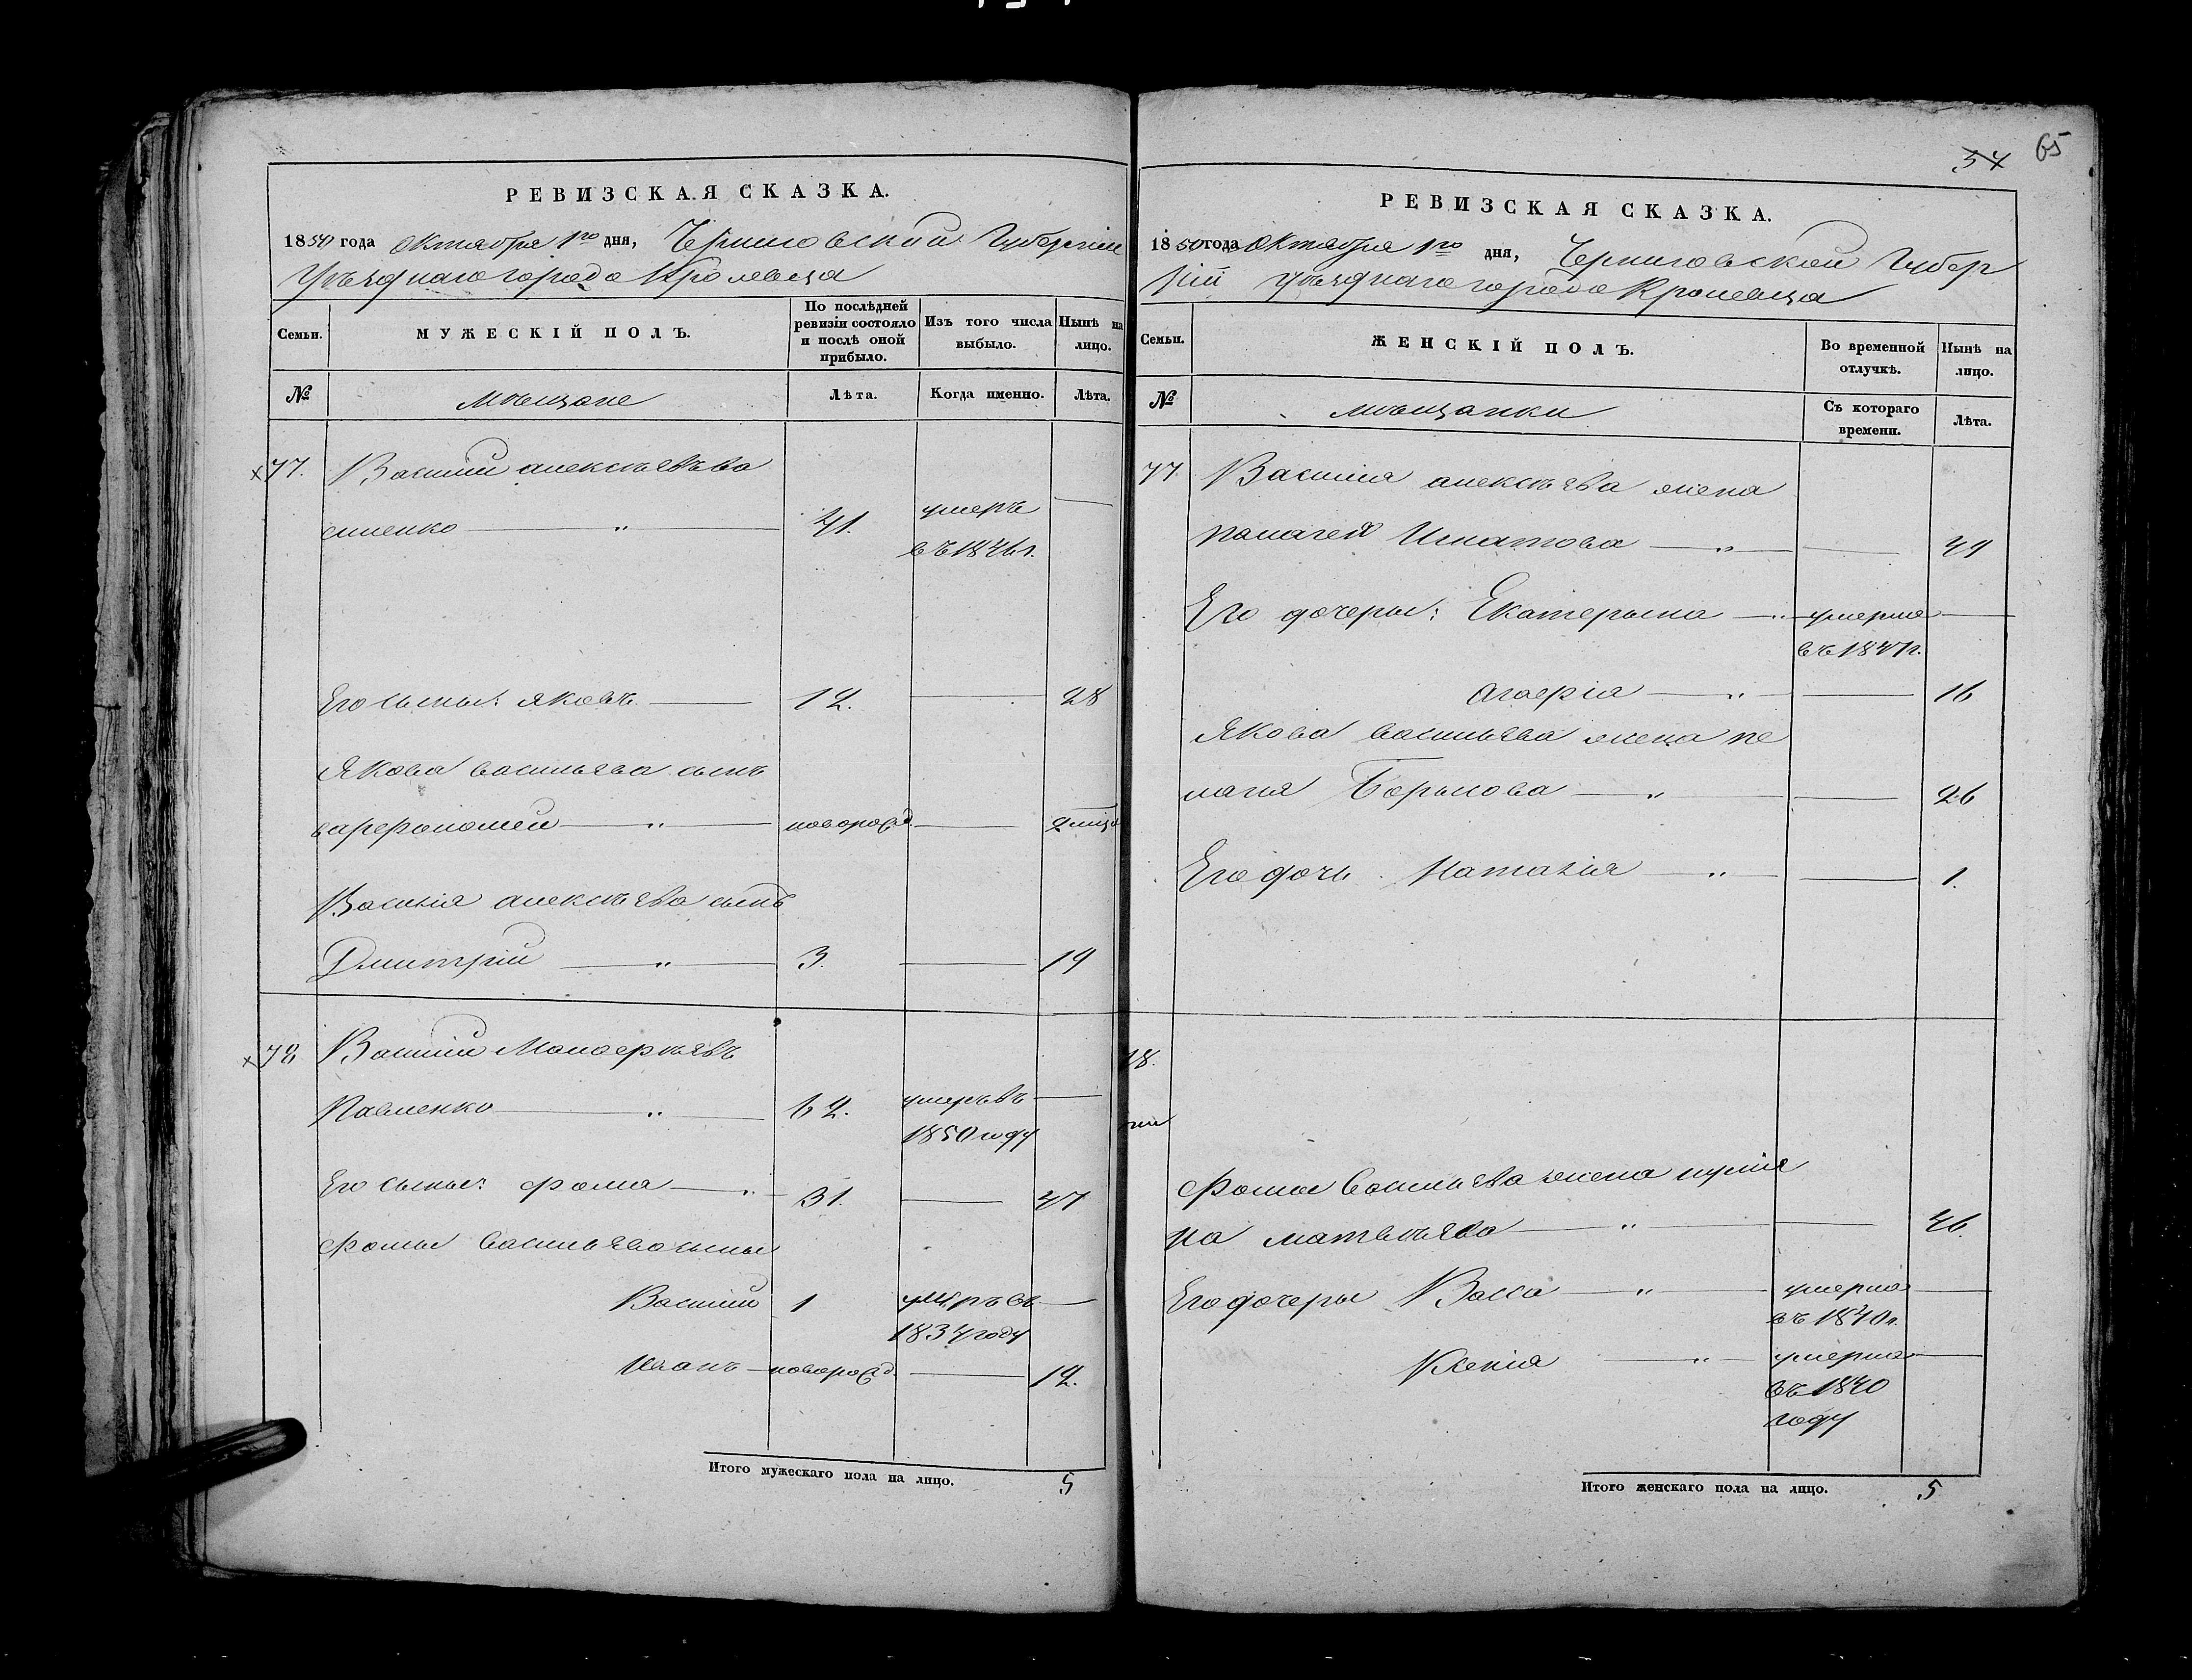 54 65
РЕВИЗСКАЯ СКАЗКА.
1850 года Октября 1го дня, Черниговской Губерніи
Уѣзднаго города Кролевца
Семьи. МУЖЕСКІЙ ПОЛЪ. По послѣдней ревизіи состояло и послѣ оной прибыло. Изъ того числа выбыло. Нынѣ на лицо.
№ мѣщане Лѣта. Когда именно. Лѣта.
77. Василий алексѣевъ Ва
силенко 41. умеръ
въ 1846г.
Его сыны: яковъ 12. 28
Якова васильева сынъ
варфоломей новорожд.
Василія алексѣева сынъ
Дмитрий 3. 19
78 Василий Маноеркѣевъ
Павленко 62. умеръ въ
1850 году
Его сыны: фома 31. 47
Фомы Васильева сыны
Василий 1 умеръ въ
1834 году
иванъ новорожд. 12.
Итого мужескаго пола на лицо. 5
РЕВИЗСКАЯ СКАЗКА.
1850 года Октября 1го дня, Черниговской Губер
ніи уѣзднаго города Кролевца
Семьи. ЖЕНСКІЙ ПОЛЪ. Во временной отлучкѣ. Нынѣ на лицо.
№ мѣщанки Съ котораго времени. Лѣта.
77 Василія алексѣева жена
палагея Игнатова 49
Его дочеры: Екатерына умерла
въ 1841г.
агафія 16
Якова васильева жена пе
лагія 26
Его дочь Наталія 1.
78.
Фомы Васильева жена
на матвѣева 46.
Его дочеры Васса умерла
въ 1840г.
Ксенія умерла
въ 1840
году
Итого женскаго пола на лицо. 5